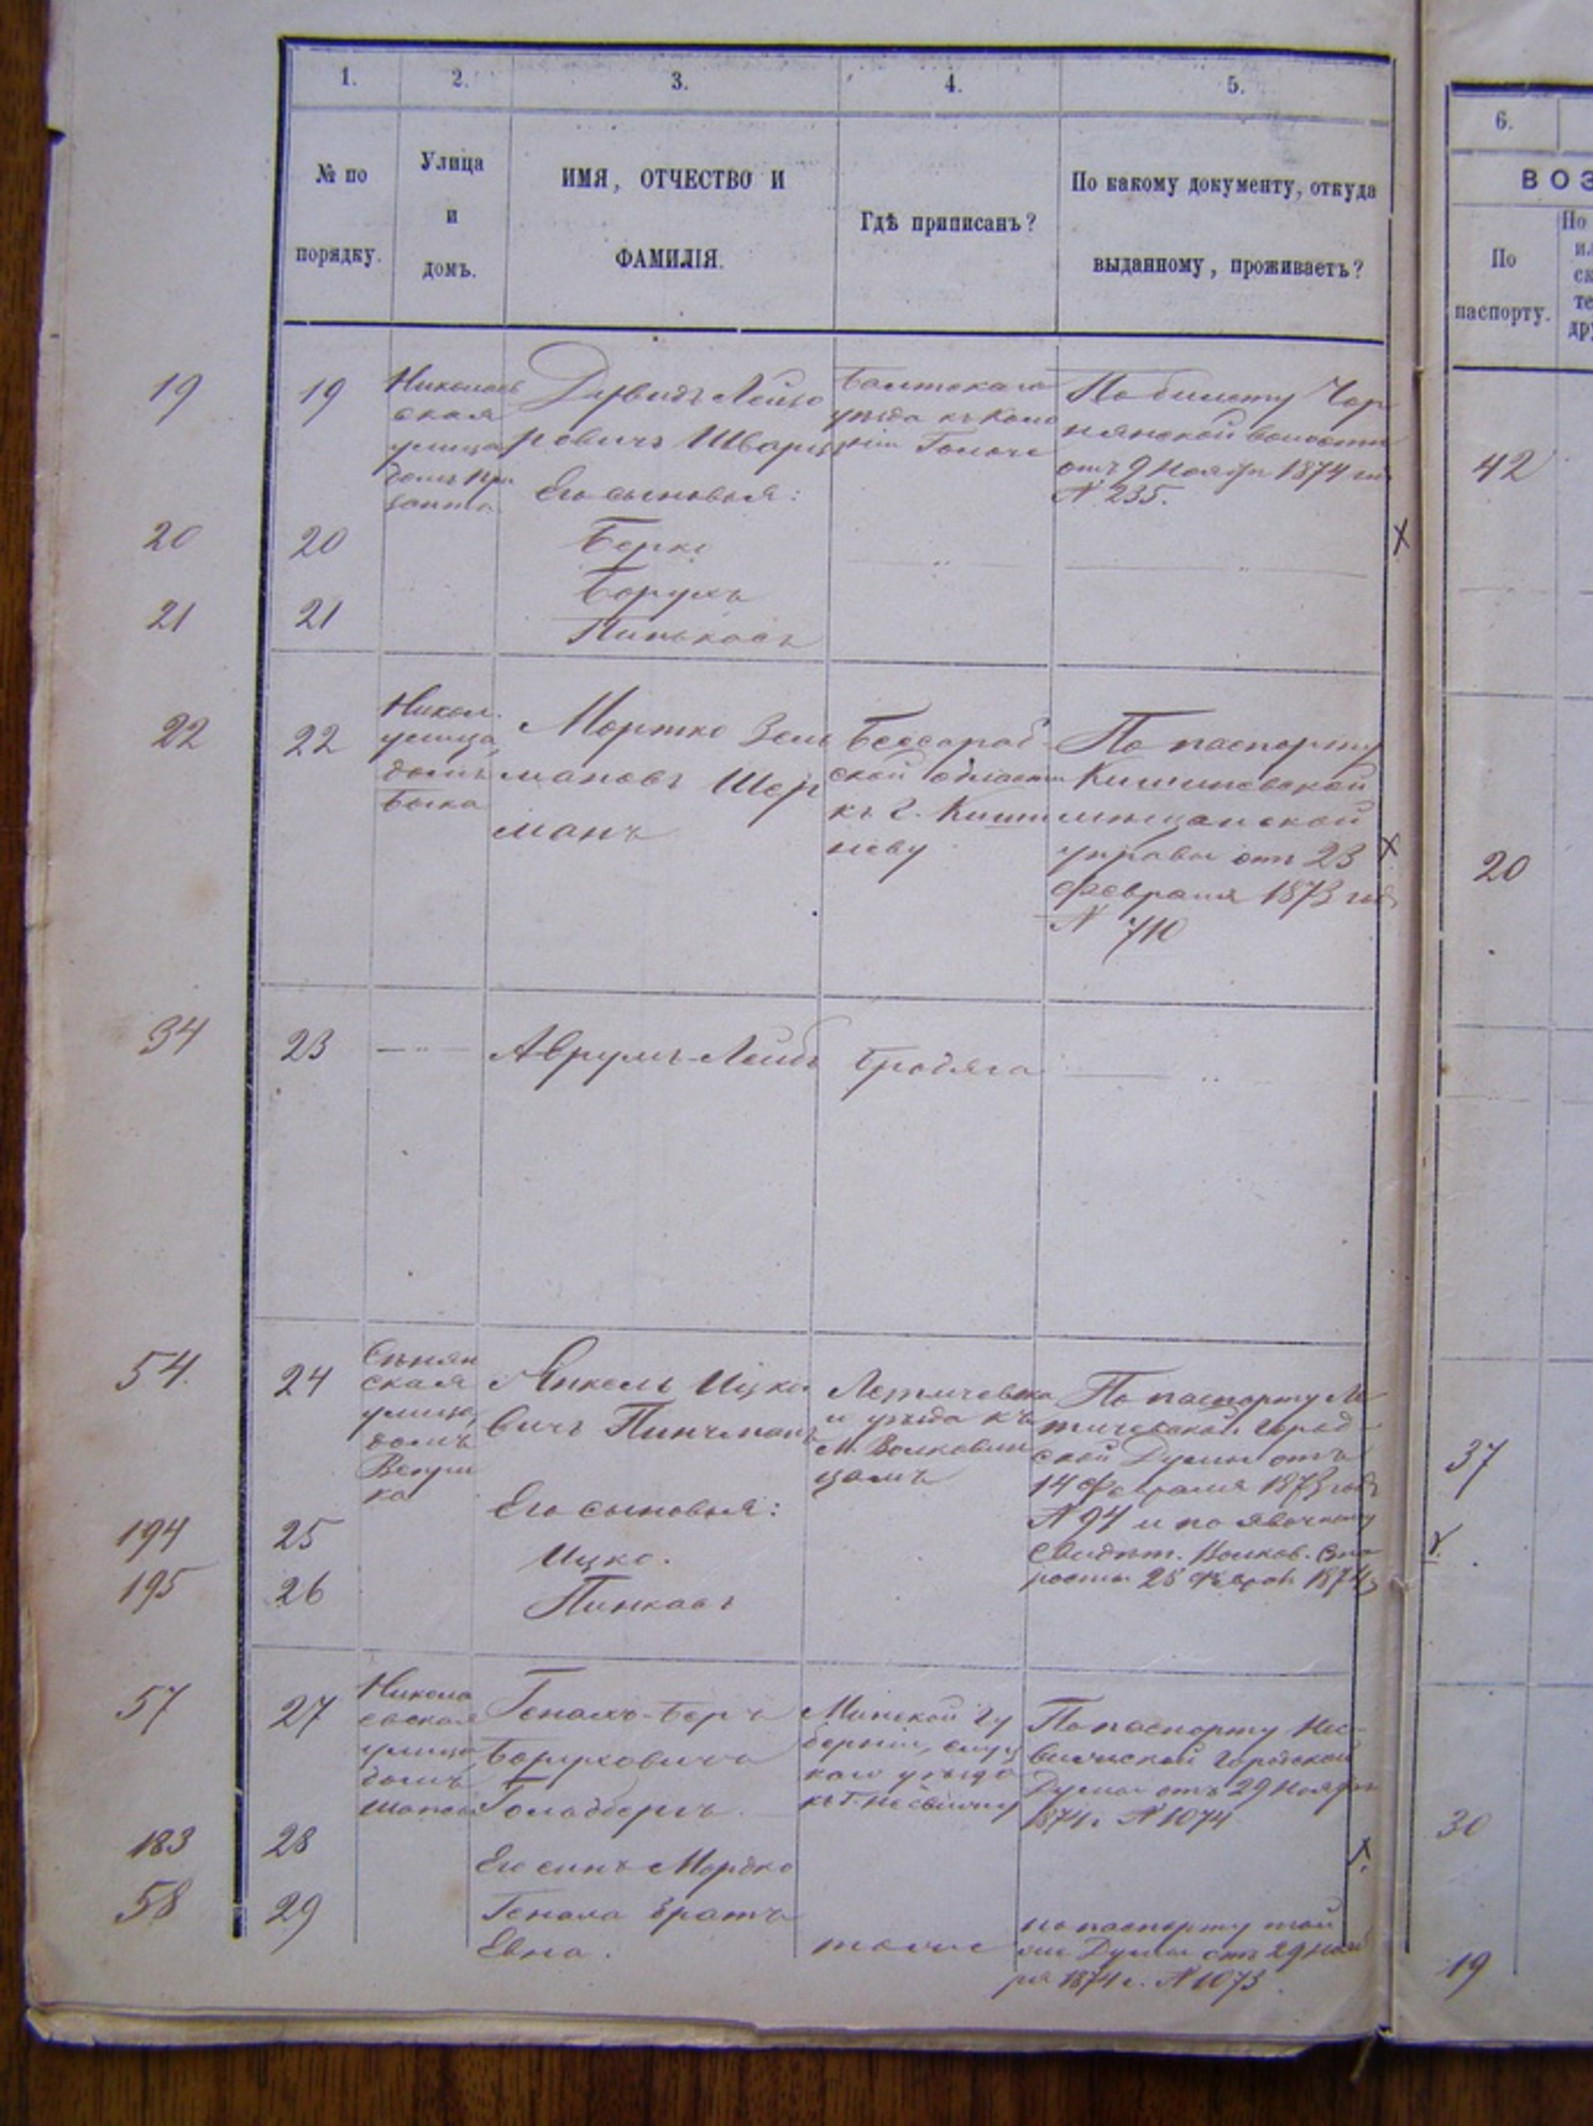 1. 2. 3. 4. 5. 6.
№ по порядку.
Улица и домъ.
ИМЯ, ОТЧЕСТВО И ФАМИЛІЯ.
Гдѣ приписанъ?
По какому документу, откуда выданному, проживаетъ?
ВОЗ
По паспорту.
По
19 19
Николаев
ская
улица
домъ
Давидъ Лейзе
ровичъ Шварц
Его сыновья:
Балтскаго
уѣзда къ коло
ніи
По билету Чор
нянской волости
отъ 9 Ноября 1874 г.
№ 235.
42
20 20
Берко
21 21
Борухъ
Пинькасъ
22 22
Никол.
улица,
домъ
Быка
Мортко Зель
мановъ Шер
манъ
Бессараб
ской области
къ г. Киши
неву
По паспорту
Кишиневской
мѣщанской
управы отъ 23
февраля 1873 года
№ 710
20
34 23
Аврумъ-Лейбъ
бродяга
54. 24
ская
улица,
домъ
Янкель Ицко
вичъ Пинчманъ
Летичевска
го уѣзда къ
м. Волковин
цамъ
По паспорту Ле
тичевской город
ской Думы отъ
14 Февраля 1873 года
№ 94 и по явочному
свидѣт. Волков. Ста
росты 25 Феврал. 1874
37
Его сыновья:
194 25
Ицко.
195 26
Пинкасъ
57 27
Никола
евская
улица
домъ
Генахъ-Беръ
Боруховичъ
Гольдбергъ.
Минской гу
берніи, слуц
каго уѣзда
къ г. Несвижу
По паспорту Нес-
вижской городской
Думы отъ 29 Ноября
1874 г. № 1074
30
183 28
Его сынъ Мордко
58 29
Генаха братъ
Евна.
тоже
по паспорту той
же Думы отъ 29 Нояб
ря 1874 г. № 1073.
19